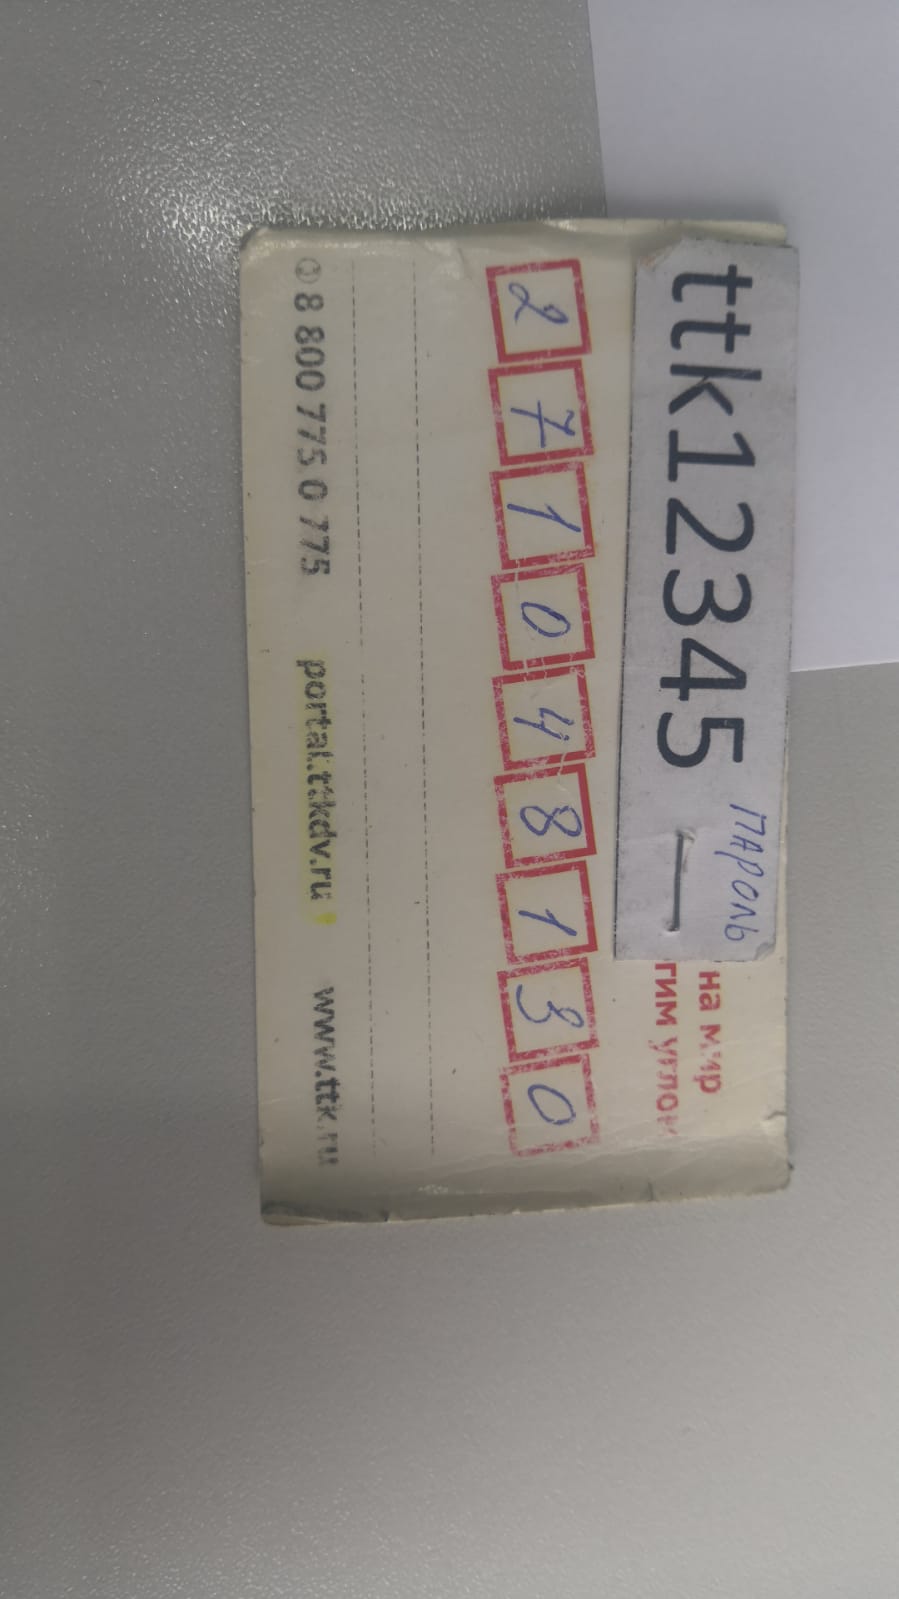 ttk12345 ПАРОЛЬ
на мир
гим углом
2 7 1 0 4 8 1 3 0
8 800 775 0 775 portal.ttkdv.ru www.ttk.ru